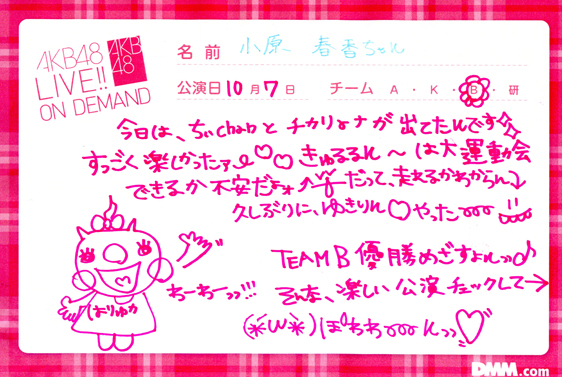 AKB48
LIVE!!
ON DEMAND
AKB
48
名前 小原 春香ちゃん
公演日 10月7日 チーム A・K・B・研
今日は、ちぃchanと チカリーナが 出てたんです
すっごく楽しかったァ♡♡ きゅるるん〜は大運動会
できるか不安だょォ だって、走れるかわからん
久しぶりに、ゆきりん♡やった
TEAM B 優勝めざすょんっ♪
わーわーっっ!!! そんな、楽しい公演チェックして→
(*´ω`*)ぽわわ〜んっっ♡
はりゅか
DMM.com